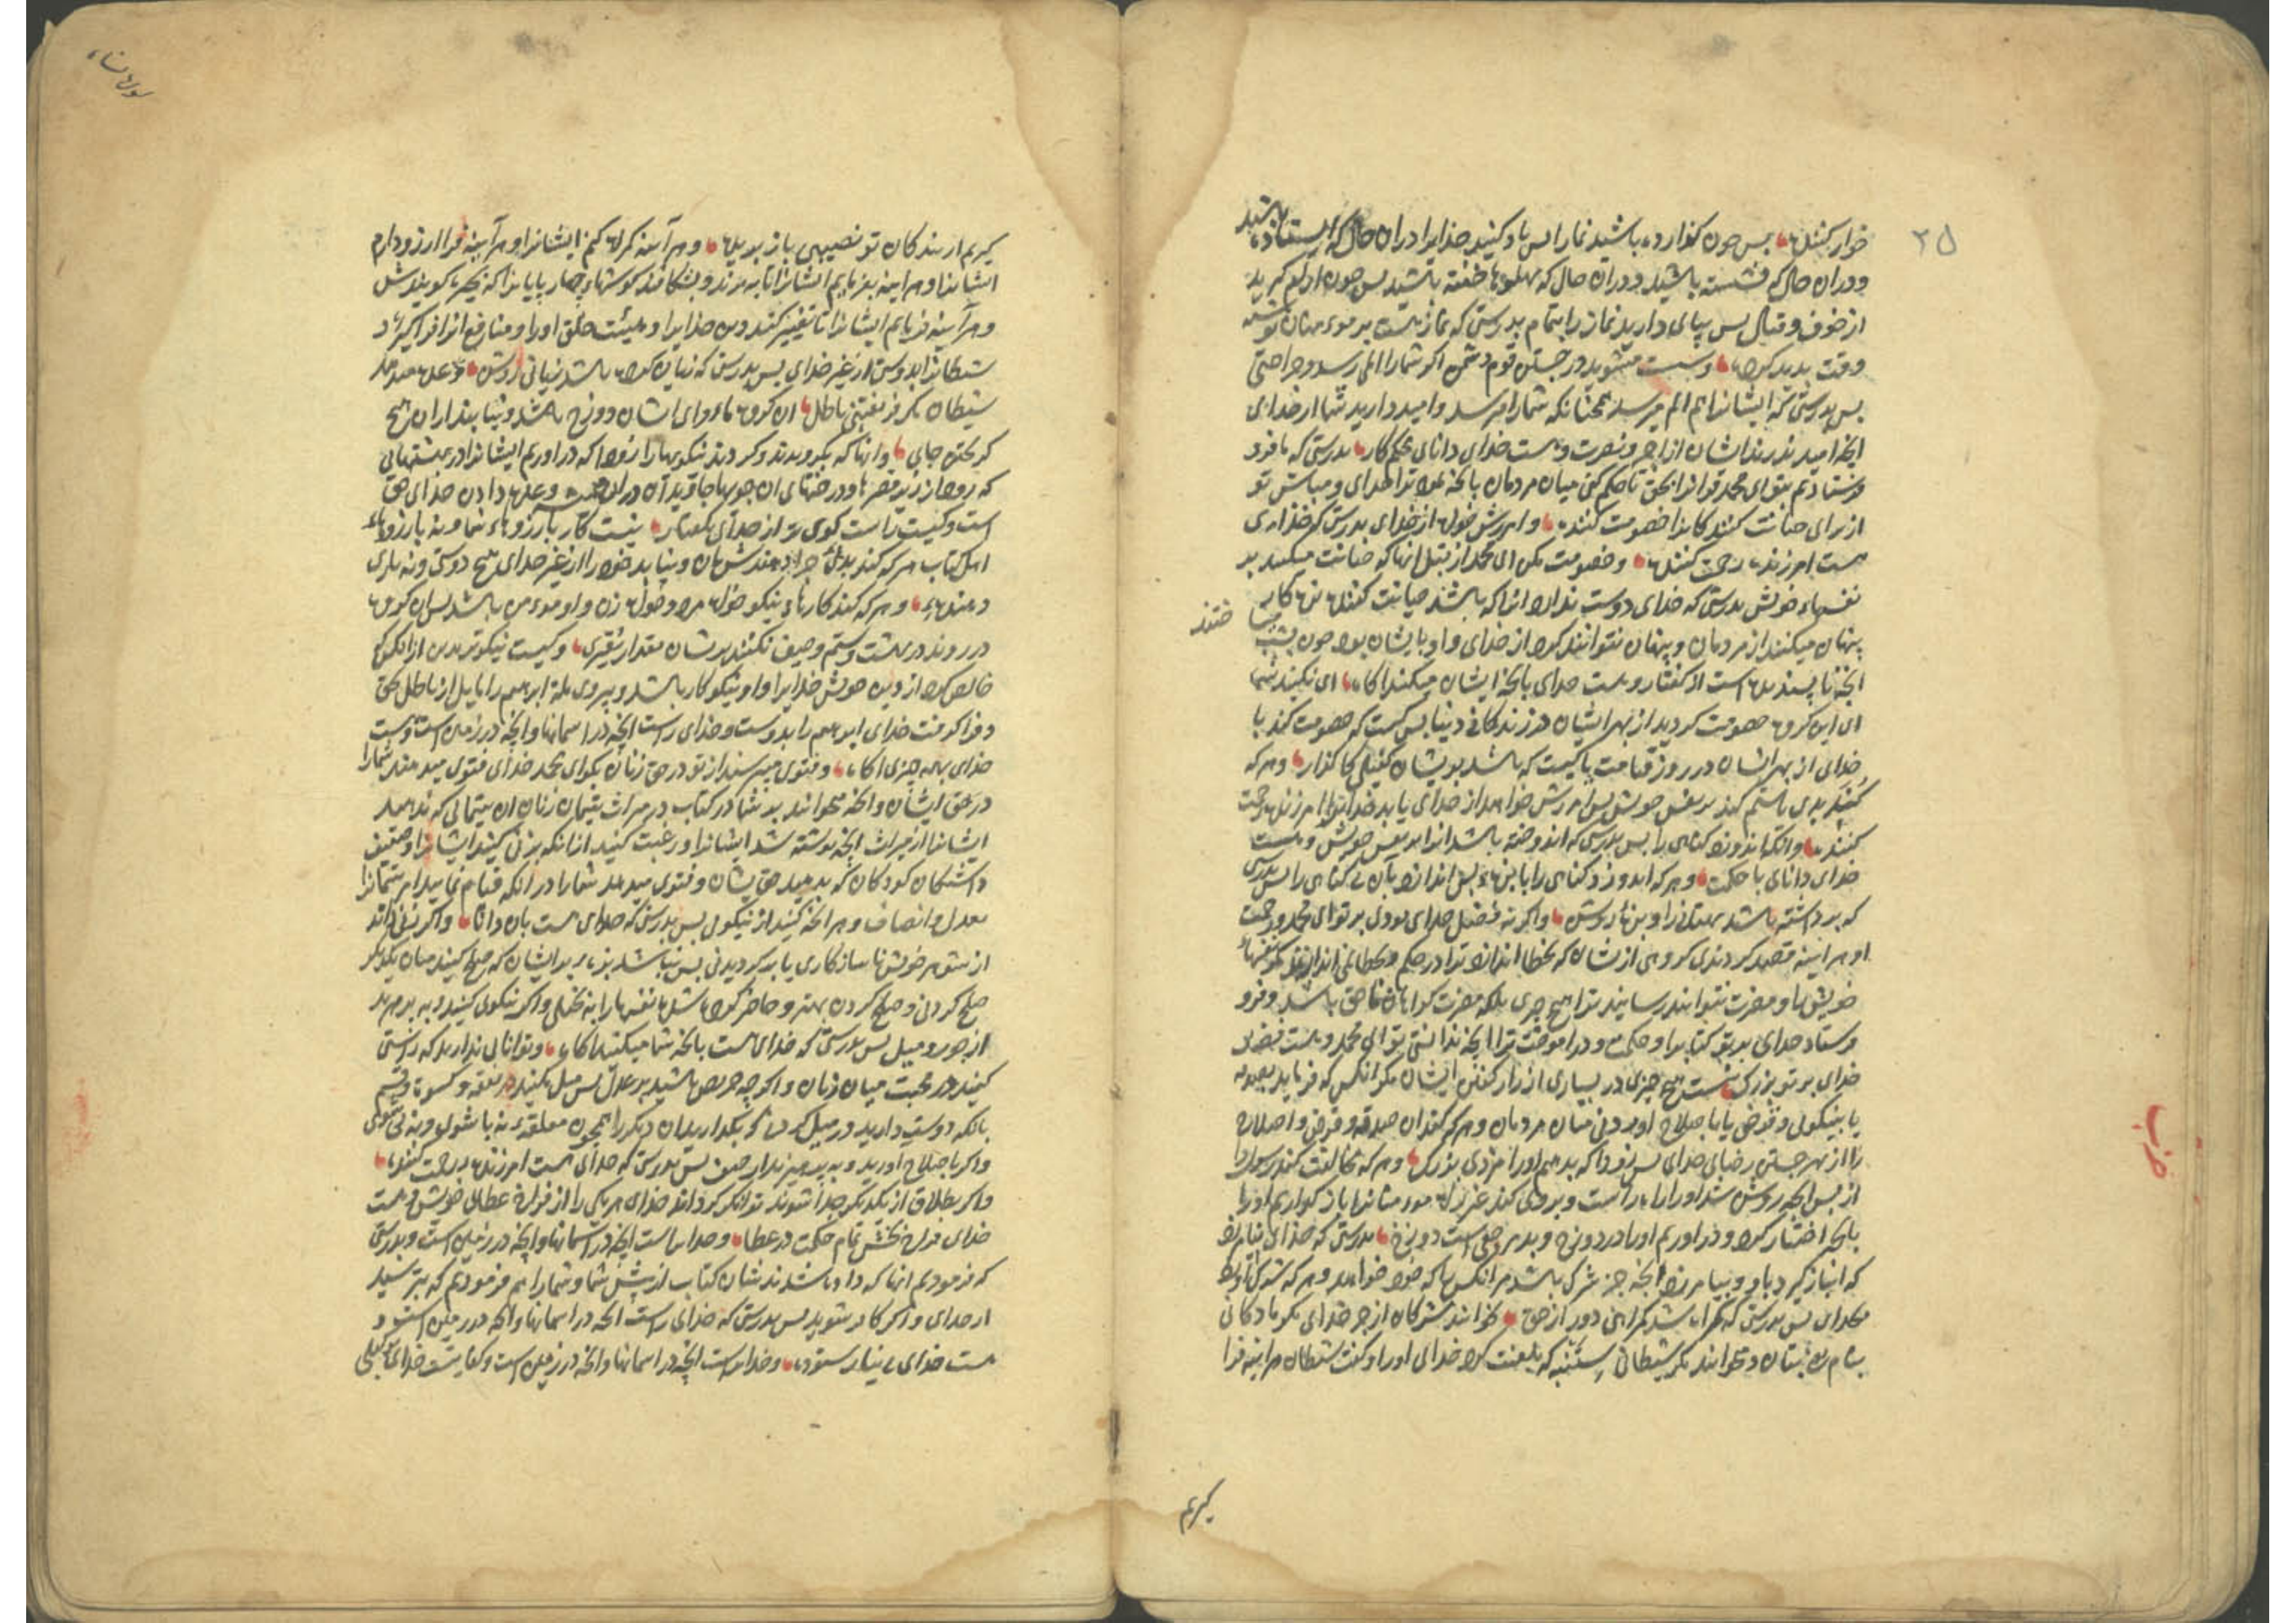 ۲۵
خوار کننده پس چون گذارده باشید نماز را پس یاد کنید خدایرا دران حال که ایستاده باشید
و دران حال که نشسته باشید و دران حال که بپهلوها خفته باشید پس چون آرام گیرید
از خوف و قتال پس بپای دارید نماز را بتمام بدرستی که نماز هست بر مومنان نوشته
وقت پدید کرده و سست مشوید در جستن قوم دشمن اگر شما را الم رسد و جراحتی
پس بدرستی که ایشانرا هم الم میرسد همچنانکه شما را میرسد و امید دارید شما از خدای
آنچه امید ندارند ایشان از اجر و نصرت و هست خدای دانای محکم کار بدرستی که ما فرو
فرستادیم بتو ای محمد قرآنرا بحق تا حکم کنی میان مردمان بآنچه نمود ترا خدای و مباش تو
از برای خیانت کنندگان را خصومت کننده و آمرزش خواه از خدای بدرستی که خدای
هست آمرزنده رحمت کننده و خصومت مکن ای محمد از قبل آنها که خیانت میکنند بر
نفسهاء خویش بدرستی که خدای دوست ندارد آنرا که باشد خیانت کننده بزه کار
پنهان میکنند از مردمان و پنهان نتوانند کرد از خدای و او با ایشان بود چون بشب
ساختند
آنچه ناپسندیده است از گفتار و هست خدای بآنچه ایشان میکنند آگاه ای نگیند شما
ای این گروه خصومت کردید از بهر ایشان در زندگانی دنیا پس کیست که خصومت کند با
خدای از بهر ایشان در روز قیامت یا کیست که باشد بر ایشان کفیلی کارگذار و هر که
کند بدی یا ستم کند بر نفس خویش پس آمرزش خواهد از خدای یابد خدایرا آمرزنده رحمت
کننده و آنکه اندوزد گناهی را پس بدرستی که اندوخته باشد آنرا بر نفس خویش و هست
خدای دانای با حکمت و هر که اندوزد گناهی را یا بزهء پس اندازد بآن بی گناهی را پس بدرستی
که برداشته باشد بهتانی را و بزهء روشن و اگر نه فضل خدای بودی بر تو ای محمد و رحمت
او هر آینه قصد کردندی گروهی از شان که بخطا اندازند ترا در حکم و بخطا نمی اندازند مگر نفسهاء
خویش را و مضرت نتوانند رسانید ترا هیچ چیزی بلکه مضرت گواهان ناحق باشد و فرو
فرستاد خدای بر تو کتابرا و حکمت و در آموخت ترا آنچه ندانستی تو ای محمد و هست فضل
خدای بر تو بزرگ نیست هیچ چیزی در بسیاری از راز گفتن ایشان مگر آنکس که فرماید بصدقه
یا بنیکوئی و قرض یا باصلاح آوردنی میان مردمان و هر که کند آن صدقه و قرض و اصلاح
را از بهر جستن رضای خدای پس زودا که بدهیم او را مزدی بزرگ و هر که مخالفت کند رسول را
از پس آنچه روشن شد او را راه راست و پیروی کند غیر راه مومنانرا باز گذاریم او را
بآنچه اختیار کرد و در آوریم او را در دوزخ و بد مرجعی است دوزخ بدرستی که خدای نیامرزد
که انباز گیرد باو و بیامرزد آنچه جز شرک باشد مر آنکس را که خود خواهد و هر که شرک آورد
بخدای پس بدرستی که گمراه شد گمراهی دور از حق نخوانند مشرکان از جز خدای مگر مادگانی
بنام بتان و نخوانند مگر شیطانی ستنبه که بلعنت کرد خدای او را و گفت شیطان هر آینه فرا
گیرم
حزب
سورة النساء
گیرم از بندگان تو نصیبی باز بریده و هر آینه گمراه کنم ایشانرا و هر آینه فرا آرزو دارم
ایشانرا و هر آینه بفرمایم ایشانرا تا ببرند و بشکافند گوشهاء چهارپایانرا که بحیره گویندش
و هر آینه فرمایم ایشانرا تا تغییر کنند دین خدایرا و هیئت خلق او را و منافع آنرا فراگیرد
شیطانرا بدوستی از غیر خدای پس بدرستی که زیان کرده باشد زیانی روشن وعده میدهد
شیطان مگر فریفتنی باطل آن گروه ماوای ایشان دوزخ باشد و نیابند ازان هیچ
گریختن جایی و آنها که بگرویدند و کردند نیکویها را زودا که در آوریم ایشانرا در بهشتهایی
که رود از زیر قصرها و درختهای آن جویها جاوید آن دران همیشه وعده دادن خدای حق
است و کیست راست گوی تر از خدای بگفتار نیست کار بآرزوهاء شما و نه بآرزوهاء
اهل کتاب هر که کند بدی جزا دهندش بآن و نیابد خود را از غیر خدای هیچ دوستی و نه یاری
دهندهء و هر که کند کارهاء نیکو خواه مرد و خواه زن و او مومن باشد پس آن گروه
در روند در بهشت و ستم و حیف نکنند بر شان مقدار نقیری و کیست نیکوتر بدین از آنکس که
خالص کرد از دین خویش خدایرا و او نیکوکار باشد و پیروی ملة ابرهیم را مایل از باطل بحق
و فرا گرفت خدای ابرهیم را بدوست و خدای راست آنچه در آسمانها و آنچه در زمین است و هست
خدای بهمه چیزی آگاه و فتوی میپرسند از تو در حق زنان بگو ای محمد خدای فتوی میدهد شما را
در حق ایشان و آنچه میخوانند بر شما در کتاب در میراث یتیمان زنان آن یتیمانی که ندهید
ایشانرا از میراث آنچه نوشته شد ایشانرا و رغبت کنید از آنکه بزنی کنید ایشانرا و ضعیف
داشتگان کودکان که بدهید حق یشان و فتوی میدهد شما را در آنکه قیام نمایید مر یتیمانرا
بعدل و انصاف و هر آنچه کنید از نیکوئی پس بدرستی که خدای هست بآن دانا و اگر زنی داند
از شوهر خویش ناسازگاری یا برگردیدنی پس نباشد بزه بر ایشان که صلح کنند میان یکدیگر
صلح کردنی و صلح کردن بهتر و حاضر کرده شده نفسها را به بخیلی و اگر نیکوئی کنید و بپرهیزید
از جور و میل پس بدرستی که خدای هست بآنچه شما میکنید آگاه و توانائی ندارید که راستی
کنید در محبت میان زنان و اگر چه حریص باشید بر عدل پس میل مکنید در نفقه و کسوت و قسم
بآنکه دوست دارید در میل کردن که بگذارید آن دیگر را همچون معلقه نه با شوی و نه بی شوی
و اگر باصلاح آورید و بپرهیزید از حیف پس بدرستی که خدای هست آمرزنده رحمت کننده
و اگر بطلاق از یکدیگر جدا شوند توانگر گرداند خدای هر یکی را از فراخ عطای خویش و هست
خدای فراخ بخشش تمام حکمت در عطا و خدایراست آنچه در آسمانها و آنچه در زمین است و بدرستی
که فرمودیم آنها که داده شدند شان کتاب از پیش شما و شما را هم فرمودیم که بترسید
از خدای و اگر کافر شوید پس بدرستی که خدای راست آنچه در آسمانها و آنچه در زمین است و
هست خدای بی نیاز ستوده و خدایراست آنچه در آسمانها و آنچه در زمین است و کفایت خدای وکیلی